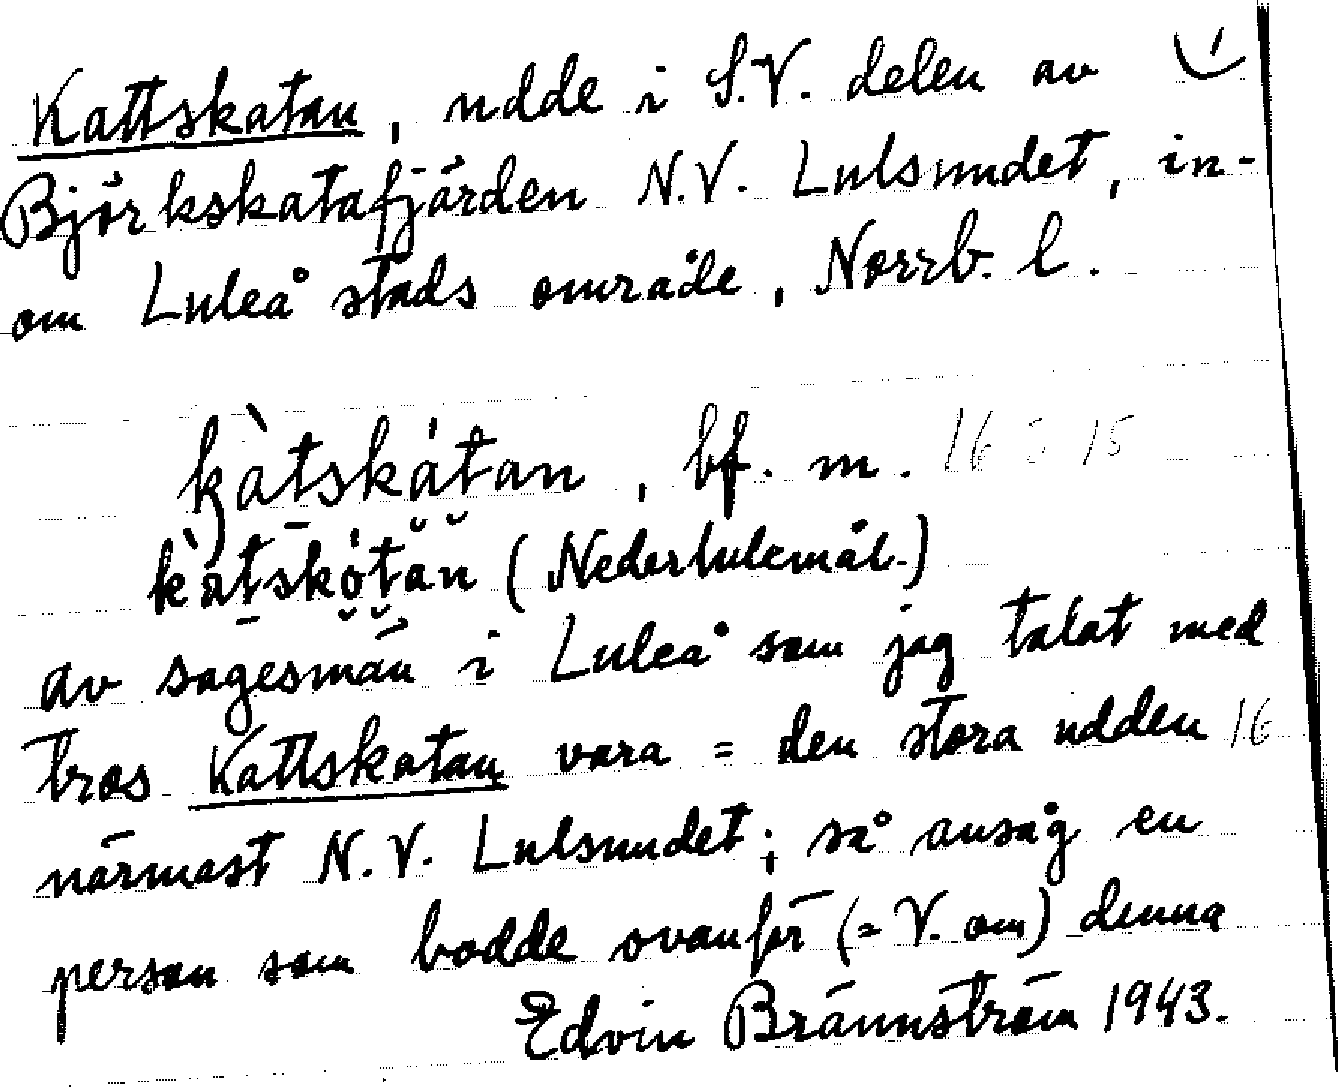 Kattskatan, udde i S.V. delen av
Björkskatafjärden N.V. Lulsundet, in-
om Luleå stads område, Norrb. l.
kàtskátan, bf. m. 16 5 15
kàtskótan (Nederlulemål.)
av sagesmän i Luleå som jag talat med
tros Kattskatan vara = den stora udden 16
närmast N.V. Lulsundet; så ansåg en
person som bodde ovanför (= V. om) denna
Edvin Brännström 1943.